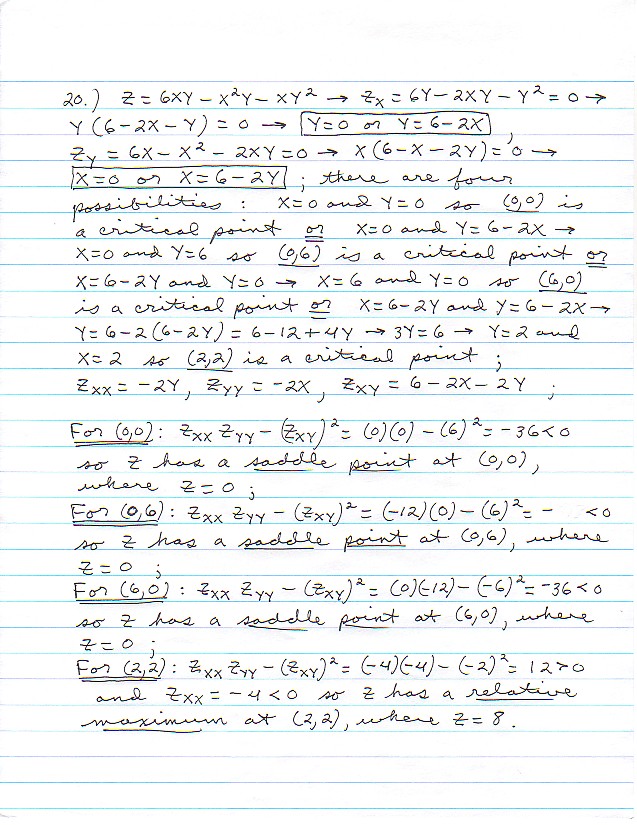 20.) Z = 6XY - X²Y - XY² → Zx = 6Y - 2XY - Y² = 0 →
Y (6 - 2X - Y) = 0 → Y = 0 or Y = 6 - 2X ,
Zy = 6X - X² - 2XY = 0 → X (6 - X - 2Y) = 0 →
X = 0 or X = 6 - 2Y ; there are four
possibilities : X = 0 and Y = 0 so (0,0) is
a critical point or X = 0 and Y = 6 - 2X →
X = 0 and Y = 6 so (0,6) is a critical point or
X = 6 - 2Y and Y = 0 → X = 6 and Y = 0 so (6,0)
is a critical point or X = 6 - 2Y and Y = 6 - 2X →
Y = 6 - 2 (6 - 2Y) = 6 - 12 + 4Y → 3Y = 6 → Y = 2 and
X = 2 so (2,2) is a critical point ;
Zxx = -2Y , Zyy = -2X , Zxy = 6 - 2X - 2Y ;
For (0,0) : Zxx Zyy - (Zxy)² = (0)(0) - (6)² = -36 < 0
so Z has a saddle point at (0,0) ,
where Z = 0 ;
For (0,6) : Zxx Zyy - (Zxy)² = (-12)(0) - (6)² = - < 0
so Z has a saddle point at (0,6) , where
Z = 0 ;
For (6,0) : Zxx Zyy - (Zxy)² = (0)(-12) - (-6)² = -36 < 0
so Z has a saddle point at (6,0) , where
Z = 0 ;
For (2,2) : Zxx Zyy - (Zxy)² = (-4)(-4) - (-2)² = 12 > 0
and Zxx = -4 < 0 so Z has a relative
maximum at (2,2) , where Z = 8 .